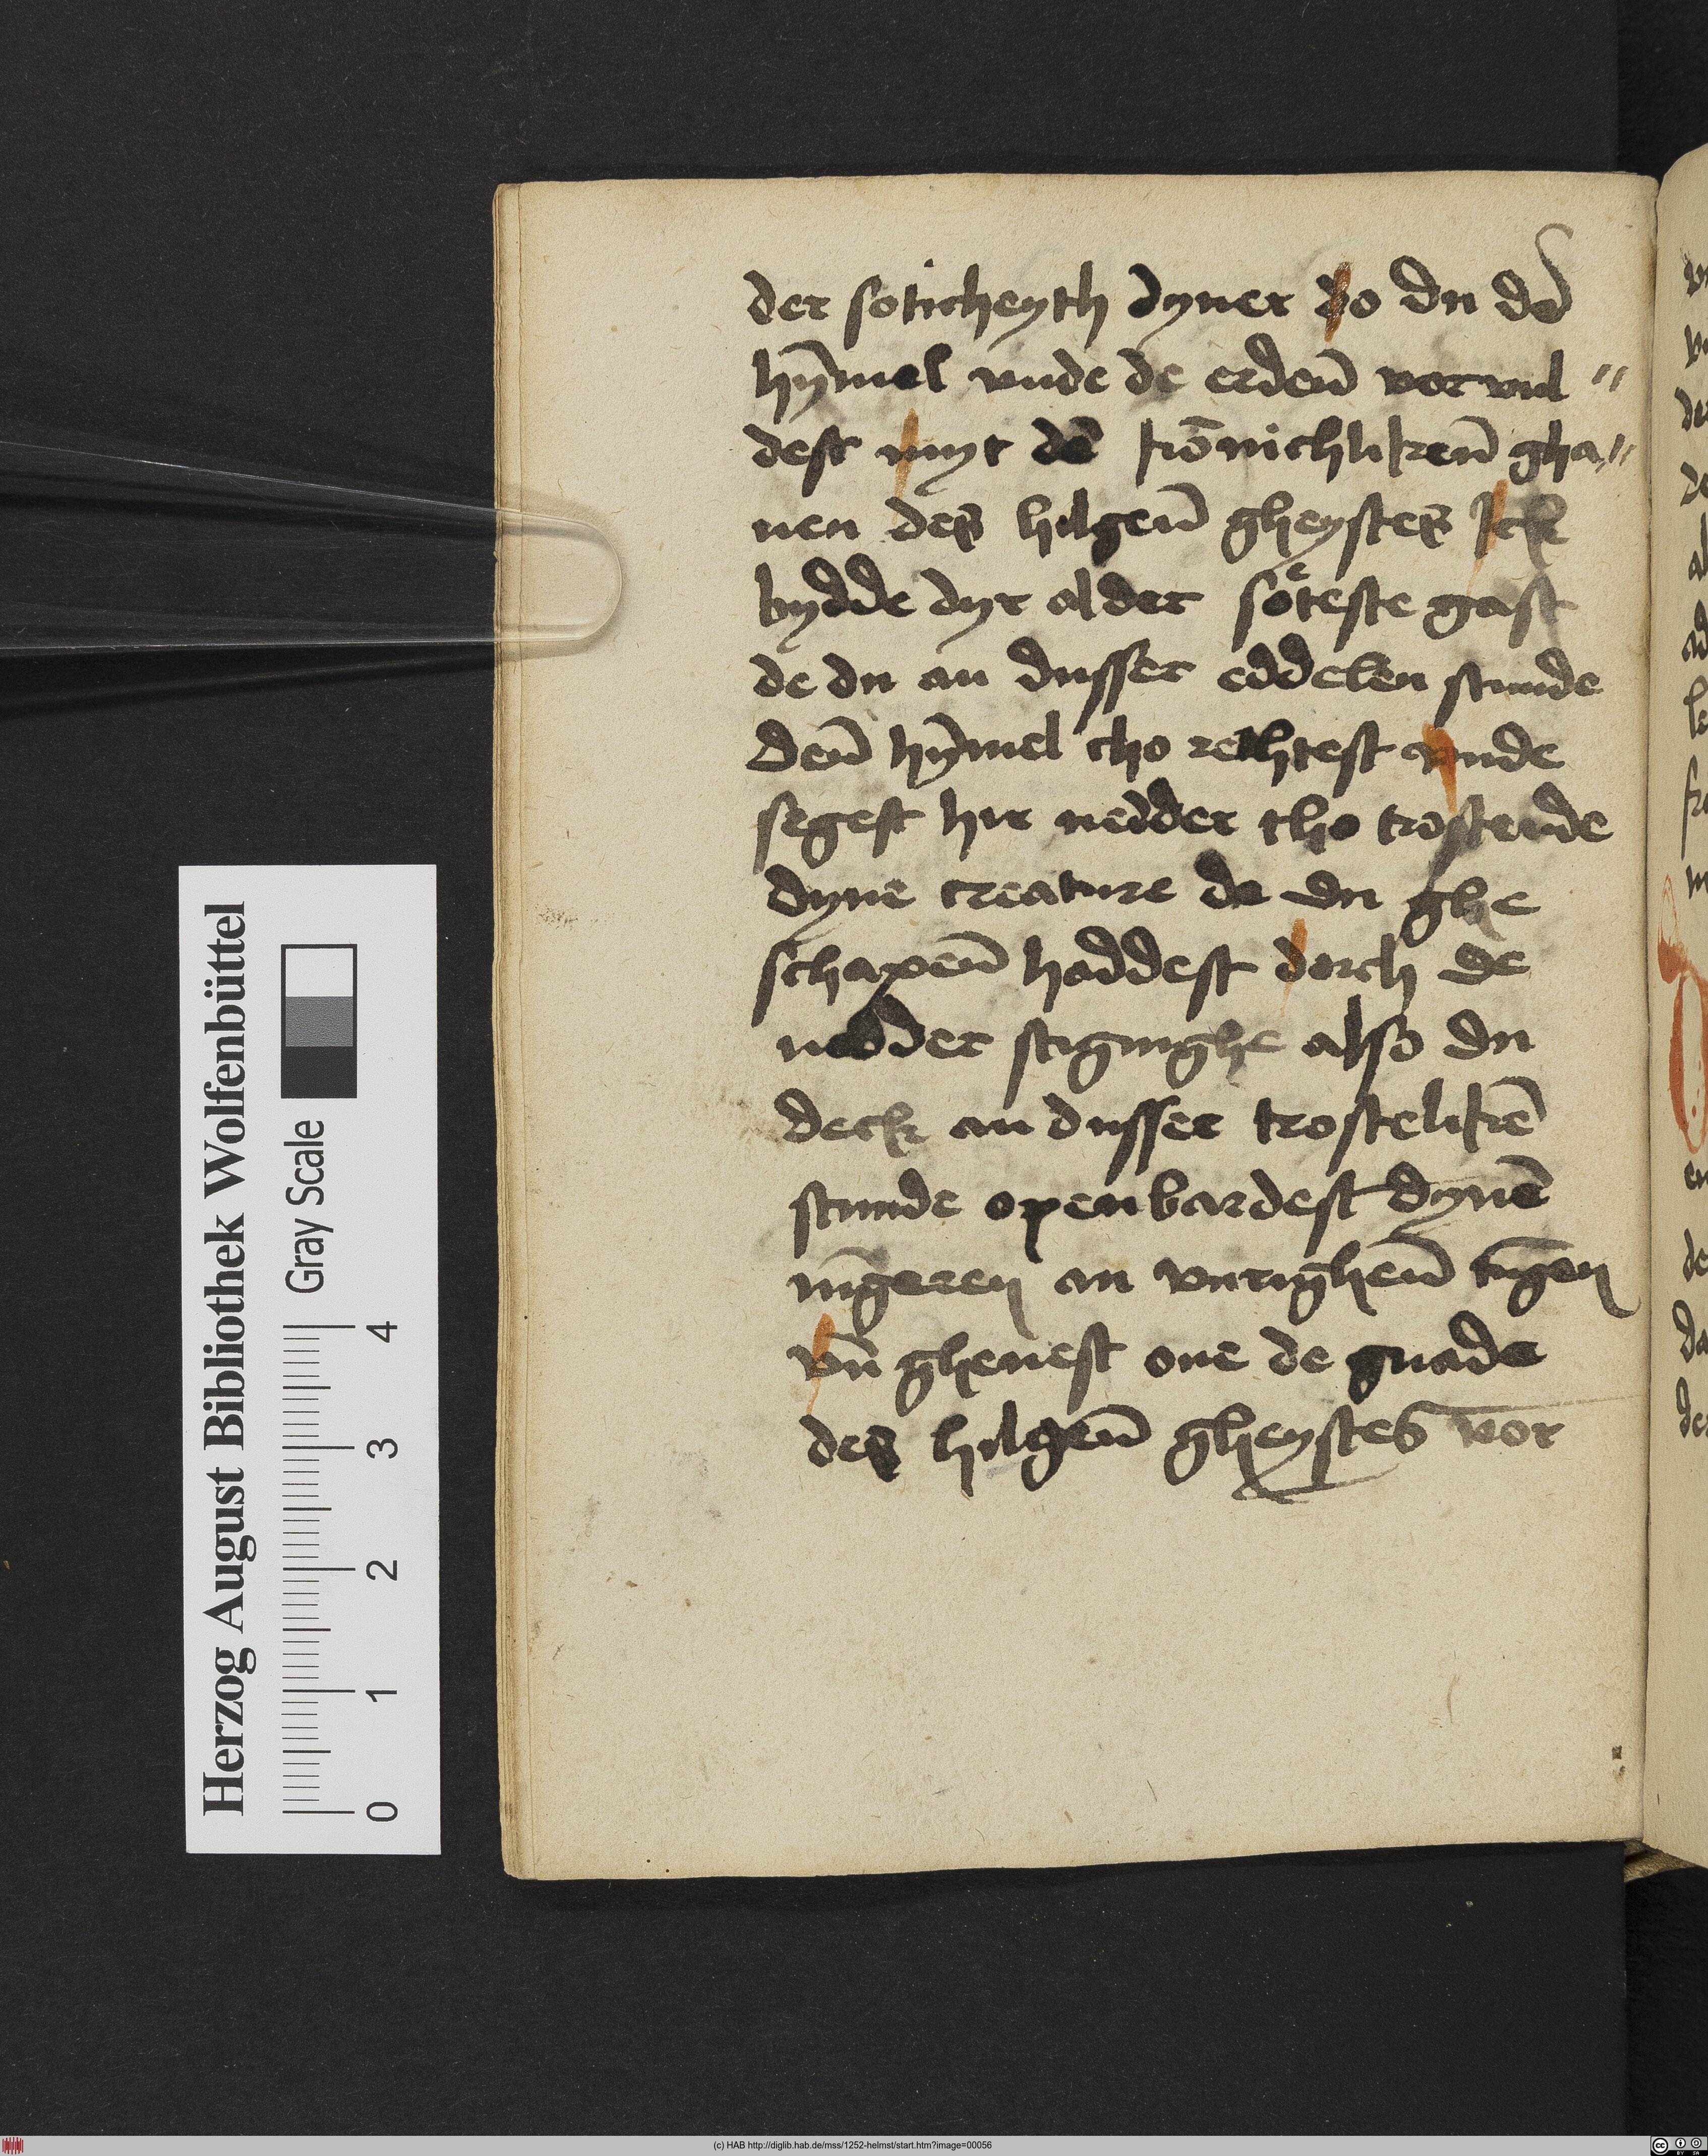 der soticheyth dyner do du dē
hȳmel vnde de erdēn vorvul"
dest myt dē kōnichlikēn gha"
uen des hilgēn gheystes Jck
bydde dyt alder soͤteste gast
de du an dusser eddelen stunde
dēn hȳmel tho rethtest vnde
segest hir nedder tho trostende
dyne creature de du ghe
schapēn haddest dorch de
nedder stiginghe also du
deck an dusser trostelikē
stunde openbardest dynē
iūgeren an vurighēn tūgen
vn̄ gheuest one de gnade
des hilgēn gheystes vor
Herzog August Bibliothek Wolfenbüttel
Gray Scale
0 1 2 3 4
(c) HAB http://diglib.hab.de/mss/1252-helmst/start.htm?image=00056